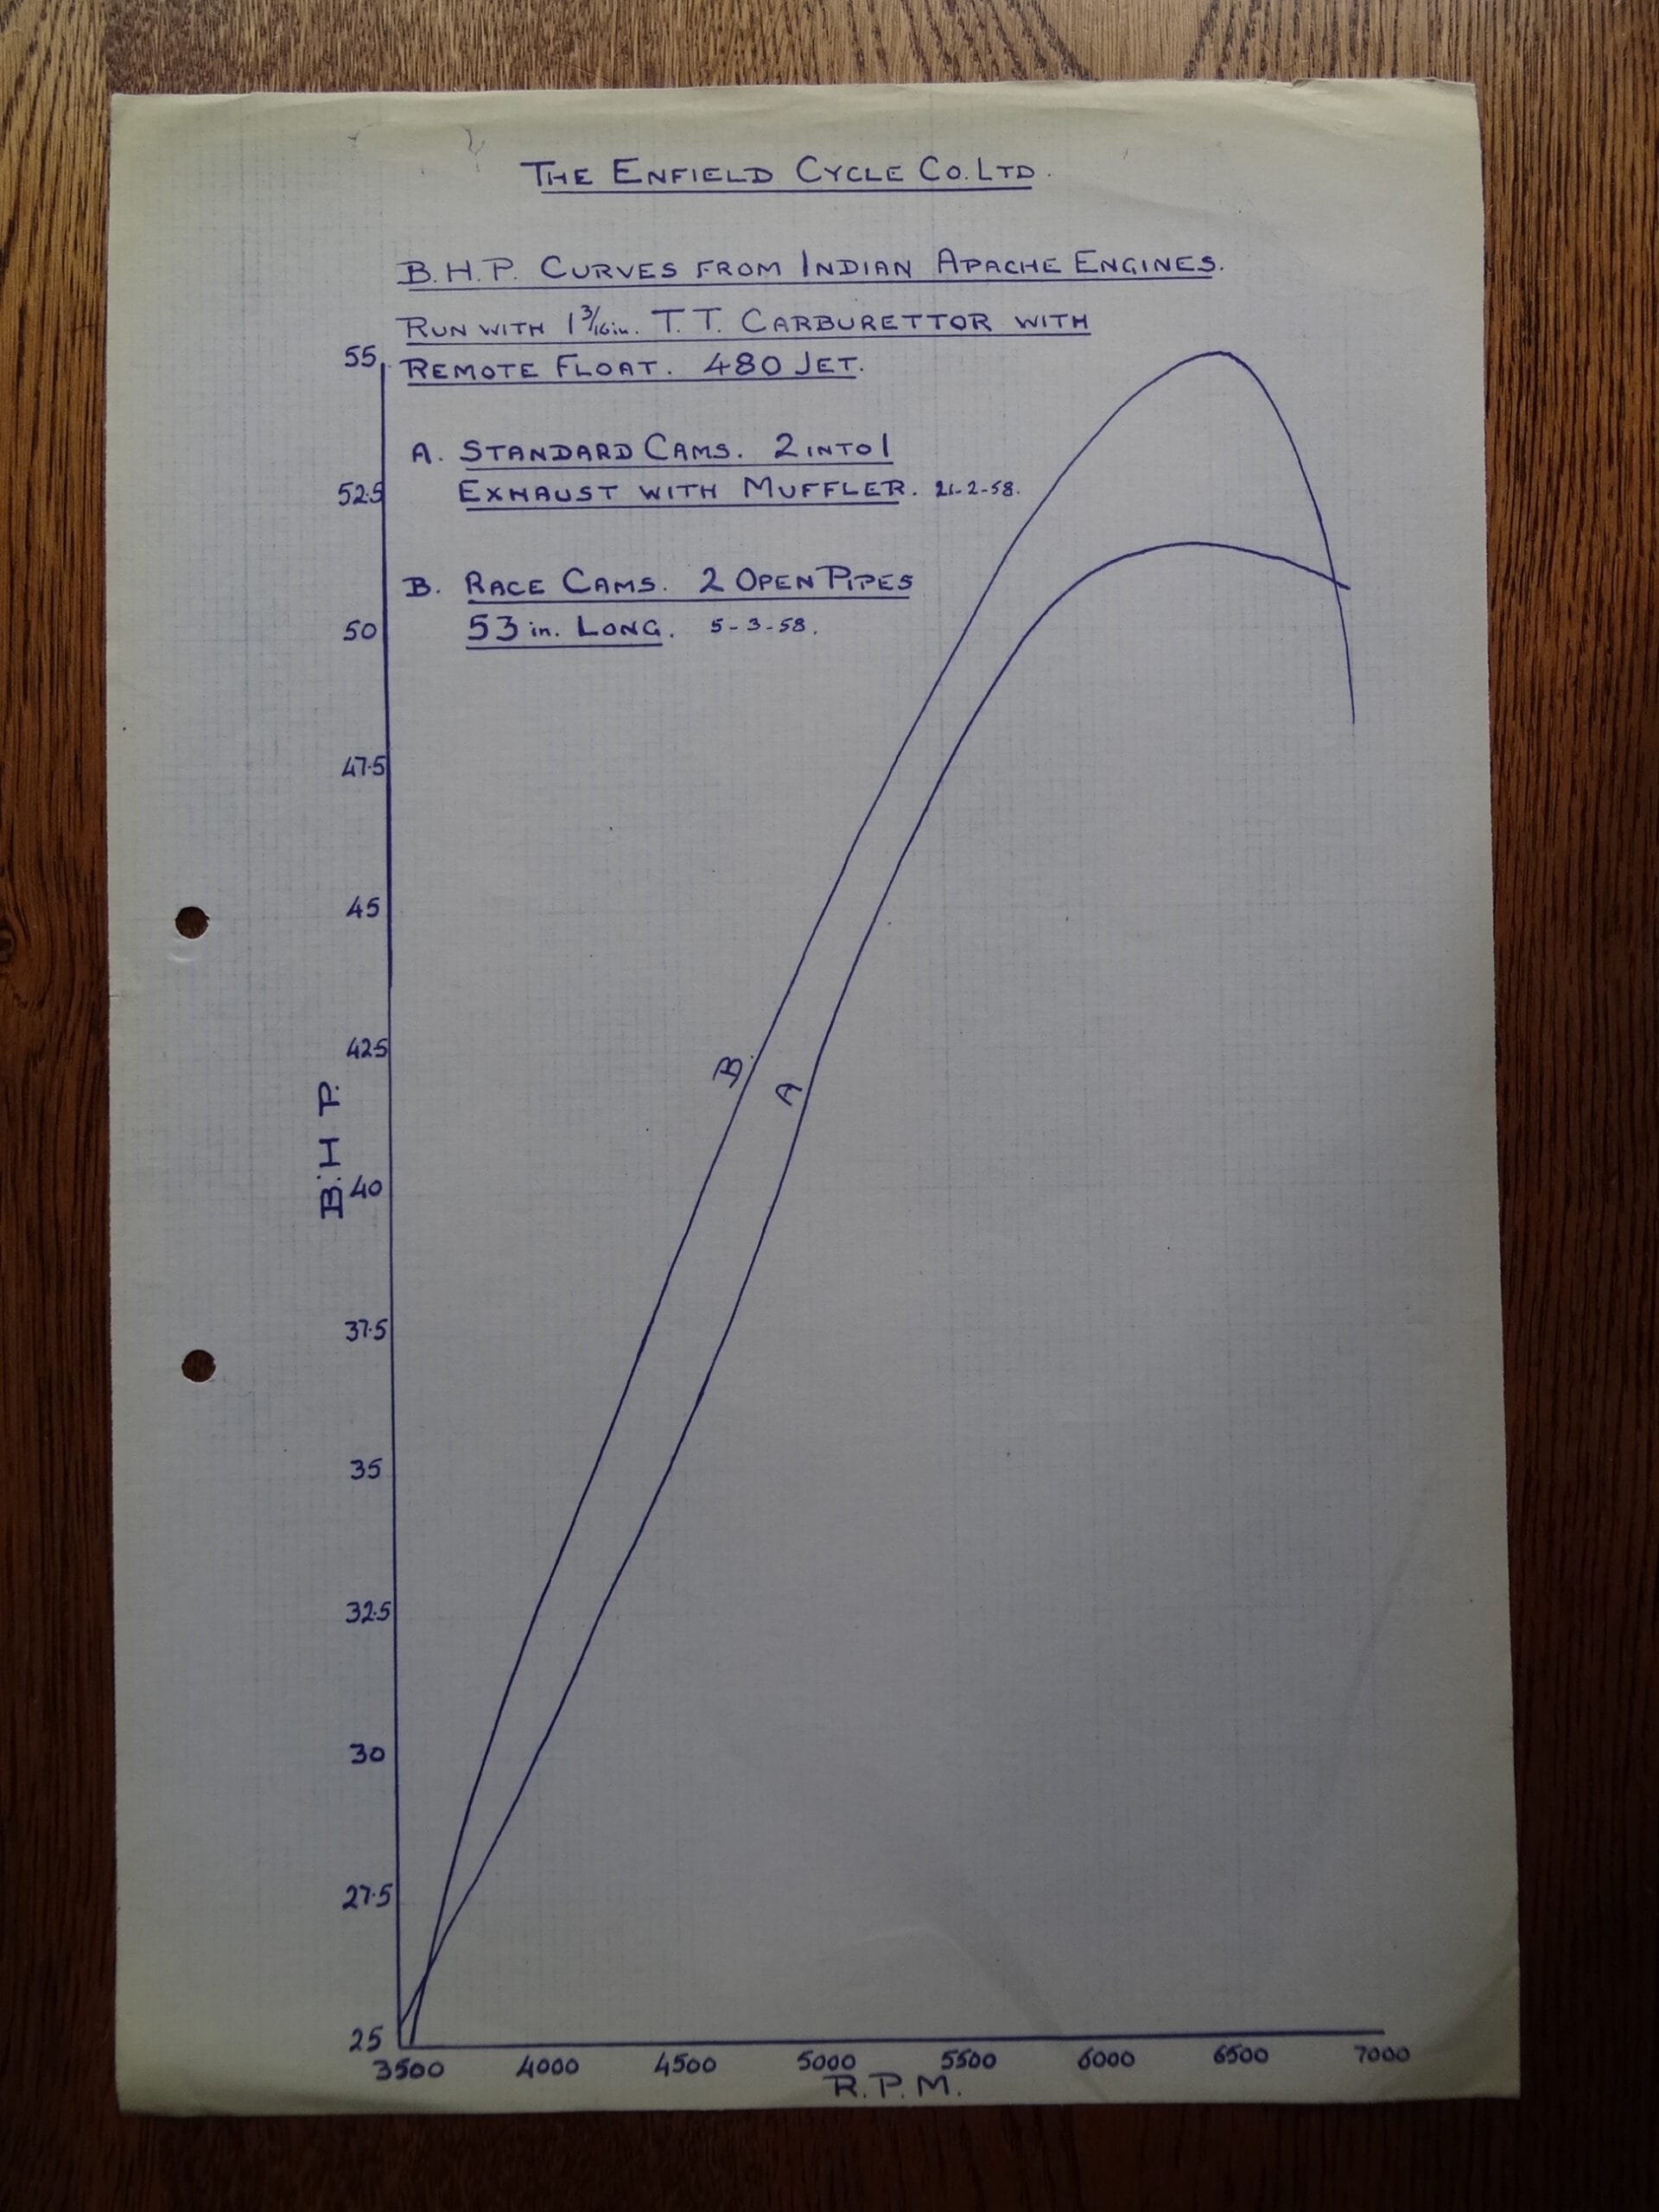 THE ENFIELD CYCLE CO. LTD.
B.H.P. CURVES FROM INDIAN APACHE ENGINES.
RUN WITH 1 3/16 in. T.T. CARBURETTOR WITH
REMOTE FLOAT. 480 JET.
A. STANDARD CAMS. 2 INTO 1
EXHAUST WITH MUFFLER. 21-2-58.
B. RACE CAMS. 2 OPEN PIPES
53 in. LONG. 5-3-58.
55
52.5
50
47.5
45
42.5
40
37.5
35
32.5
30
27.5
25
B.H.P.
B.
A
3500 4000 4500 5000 5500 6000 6500 7000
R.P.M.